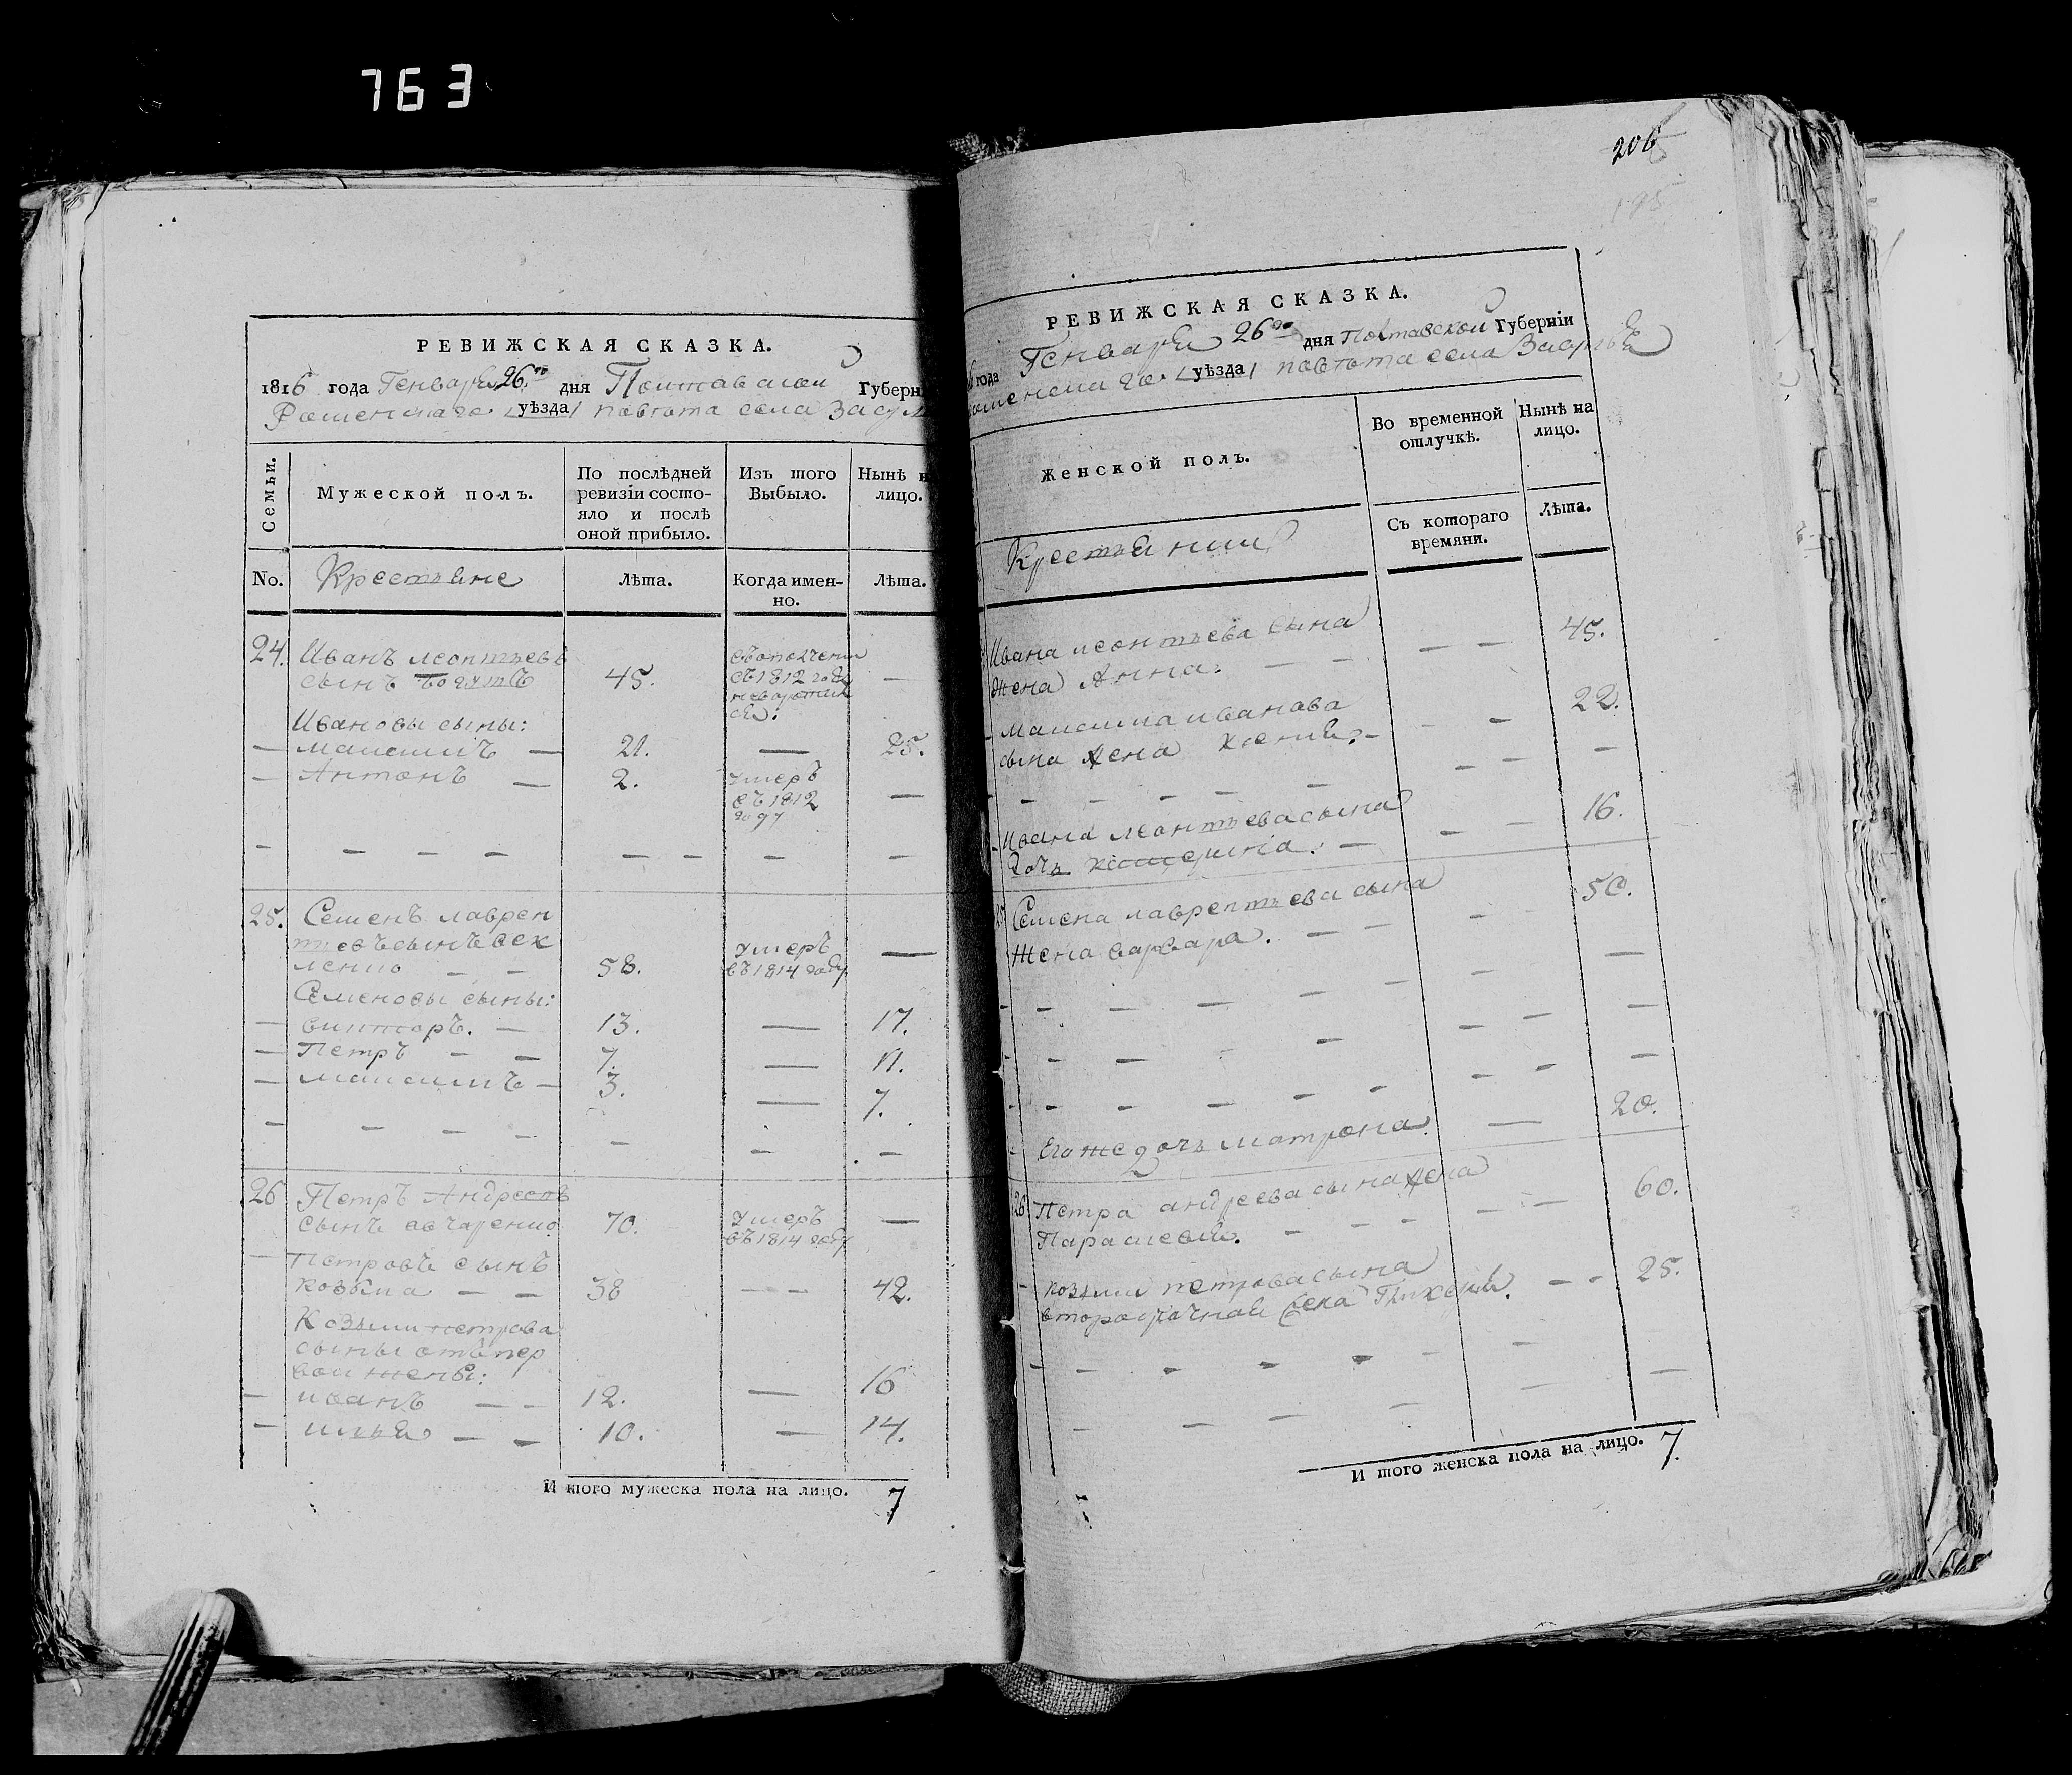 763
РЕВИЖСКАЯ СКАЗКА.
1816 года Генваря 26го дня Полтавской Губерн
Роменскаго уѣзда повѣта села Засул
Семьи.
Мужеской полъ.
По послѣдней ревизіи состо-
яло и послѣ
оной прибыло.
Изъ того
Выбыло.
Нынѣ н
лицо.
No.
Крестьяне
Лѣта.
Когда имен-
но.
Лѣта.
24. Иванъ леонтьевъ
сынъ 45. —
въ 1812 году
Ивановы сыны:
— максимъ — 21. — 25.
— Антонъ — 2. умеръ —
въ 1812
году
25. Семенъ лаврен
тьевъ сынъ век
ленко — — 58. умеръ —
въ 1814 году
Семеновы сыны:
— викторъ. — 13. — 17.
— Петръ — — 7. — 11.
— максимъ — 3. — 7.
26 Петръ Андреевъ
сынъ овчаренко 70. умеръ —
въ 1814 году
— Петровъ сынъ
козьма — — 38 — — 42.
Козьми петрова
сыны отъ пер
вой жены:
— иванъ — — 12. — 16
— илья — — 10. — 14.
И того мужеска пола на лицо. 7
206
195
РЕВИЖСКАЯ СКАЗКА.
года Генваря 26го дня Полтавской Губерніи
уѣзда повѣта села Засулья
Женской полъ.
Во временной
отлучкѣ.
Нынѣ на
лицо.
Крестьянки
Съ котораго
времяни.
Лѣта.
Ивана леонтьева сына
жена Анна. — — — — 45.
— максима иванова
сына жена ксенія. — — — 22.
— Ивана леонтьева сына
дочь — — — 16.
Семена лаврентьева сына
жена варвара. — — — — 50.
— Его же дочь матрона — 20.
26 Петра андреева сына жена
Параскевія. — — — — — 60.
— козьми петрова сына
второбрачная жена — — 25.
И того женска пола на лицо. 7.